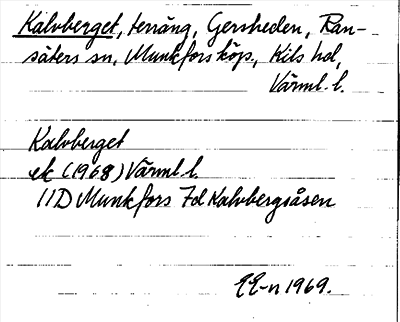 Kalvberget, terräng, Gersheden, Ran-
säters sn, Munkfors köp, Kils hd,
Värml. l.
Kalvberget
ek (1968) Värml l.
11D Munkfors 7d Kalvbergsåsen
EE-n 1969.